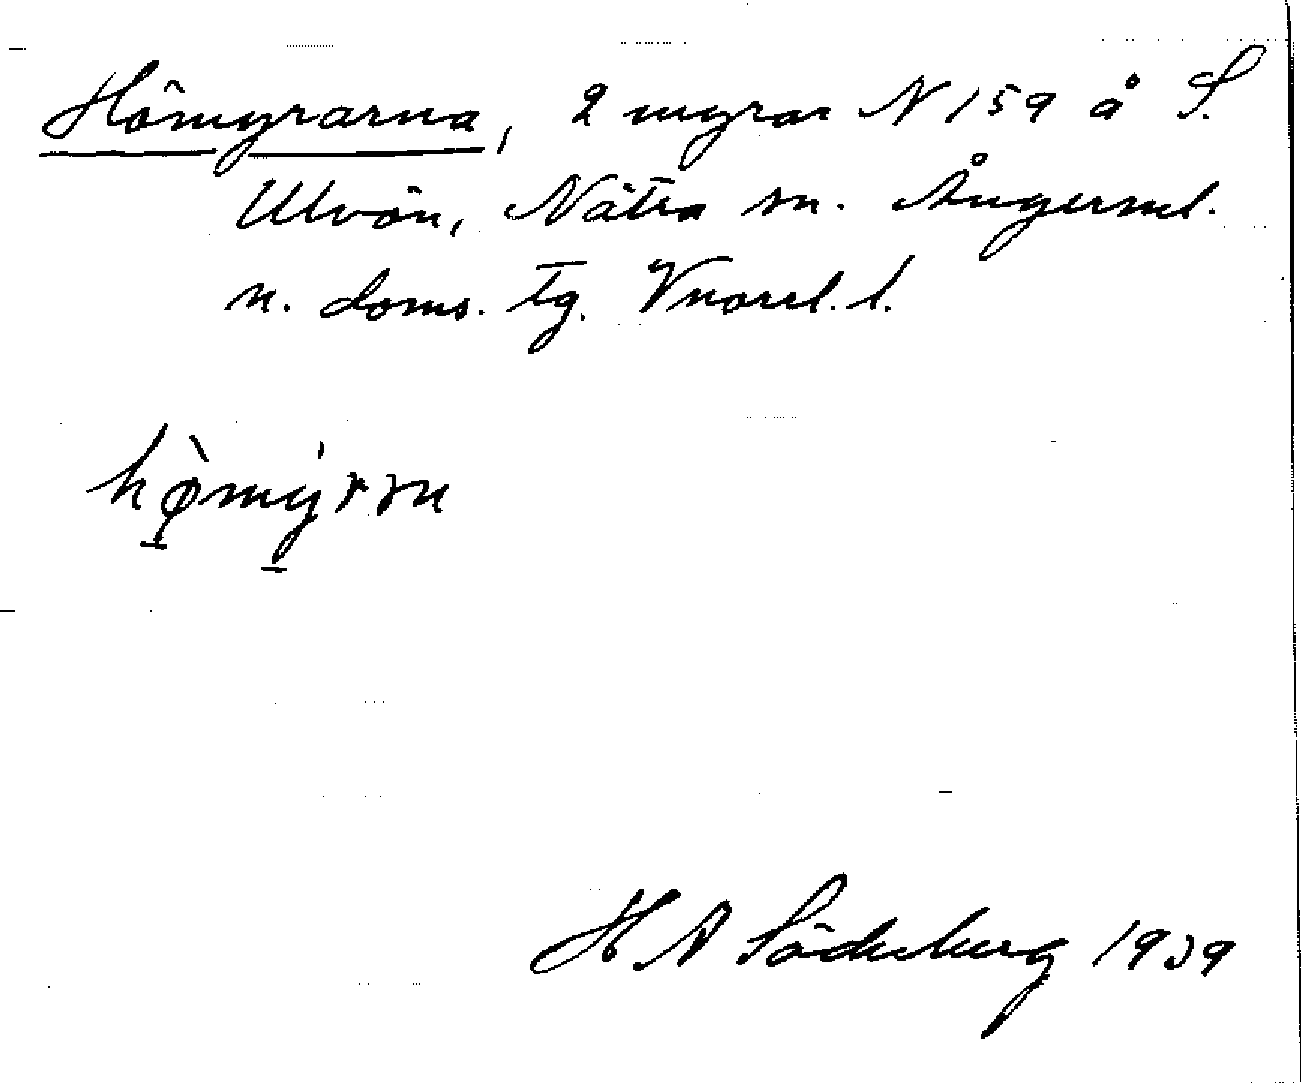 Hömyrarna, 2 myrar N 159 å S.
Ulvön, Nätra sn. Ångerml.
n. doms. Tg. Vnorrl. l.
hø̀mýrɔn
H A Söderberg 1939